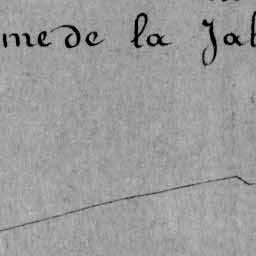 me de la Jal